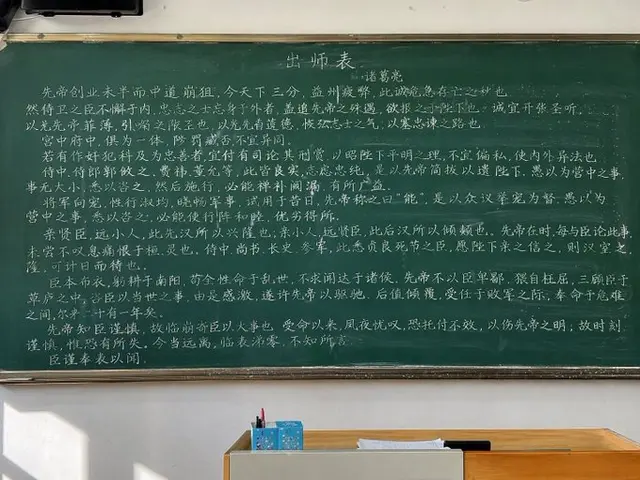 出师表
诸葛亮
先帝创业未半而中道崩殂,今天下三分,益州疲弊,此诚危急存亡之秋也
然侍卫之臣不懈于内,忠志之士忘身于外者,盖追先帝之殊遇,欲报之于陛下也。诚宜开张圣听,
以光先帝
宫中府中,俱为一体,陟罚臧否不宜异同。
若有作奸犯科及为忠善者,宜付有司论其刑赏,以昭陛下平明之理,不宜偏私,使内外异法也
侍中、侍郎郭攸之、费祎、董允等,此皆良实,志虑忠纯,是以先帝简拔以遗陛下。愚以为营中之事,
事无大小,悉以咨之,然后施行,必能裨补阙漏,有所广益。
将军向宠,性行淑均,晓畅军事,试用于昔日,先帝称之曰“能”,是以众议举宠为督。愚以为
营中之事,悉以咨之,必能使行阵和睦,优劣得所。
亲贤臣,远小人,此先汉所以兴隆也;亲小人,远贤臣,此后汉所以倾颓也。先帝在时,每与臣论此事,
未尝不叹息痛恨于桓、灵也。侍中、尚书、长史、参军,此悉贞良死节之臣,愿陛下亲之信之,则汉室之
隆,可计日而待也。
臣本布衣,躬耕于南阳,苟全性命于乱世,不求闻达于诸侯。先帝不以臣卑鄙,猥自枉屈,三顾臣于
草庐之中,咨臣以当世之事,由是感激,遂许先帝以驱驰。后值倾覆,受任于败军之际,奉命于危难
之间,尔来二十有一年矣。
先帝知臣谨慎,故临崩寄臣以大事也。受命以来,夙夜忧叹,恐托付不效,以伤先帝之明;故时刻
谨慎,惟恐有所失。今当远离,临表涕零,不知所言。
臣谨奉表以闻。